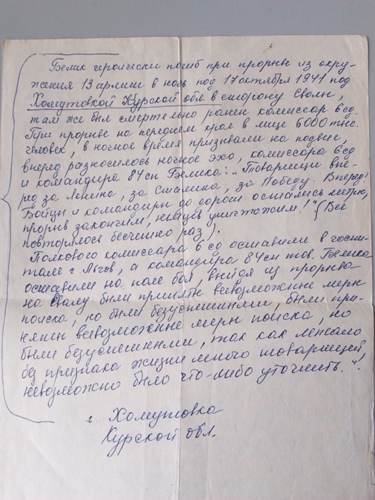 Белик геройски погиб при прорыве из окру-
жения 13 армии в ночь под 17 октября 1941 под
Хомутовкой Курской обл. в сторону Свапы,
там же был смертельно ранен комиссар в сд.
При прорыве на переднем крае в лице 6000 тыс.
человек, в ночное время призывали на подвиг,
вперед разносилось ночное эхо, комиссара всд
и командира 84 сп Белика: "Товарищи впе-
ред за Ленина, за Сталина, за Победу. Вперед!
Бойцы и командиры до дороги остались метры,
прорыв закончим, немцев уничтожим!" (Всё
повторялось бесчисно раз).
Полкового комиссара в сд оставили в госпи-
тале г. Льгов, а командира 84 сп тов. Белика
оставили на поле боя, выйдя из прорыва
на Свапу были приняты всевозможные меры
поиска, но были безуспешными, были при-
няты всевозможные меры поиска, но
были безуспешными, так как лежало
без признака жизни много товарищей
невозможно было что-либо уточнить."!
с. Хомутовка
Курской обл.